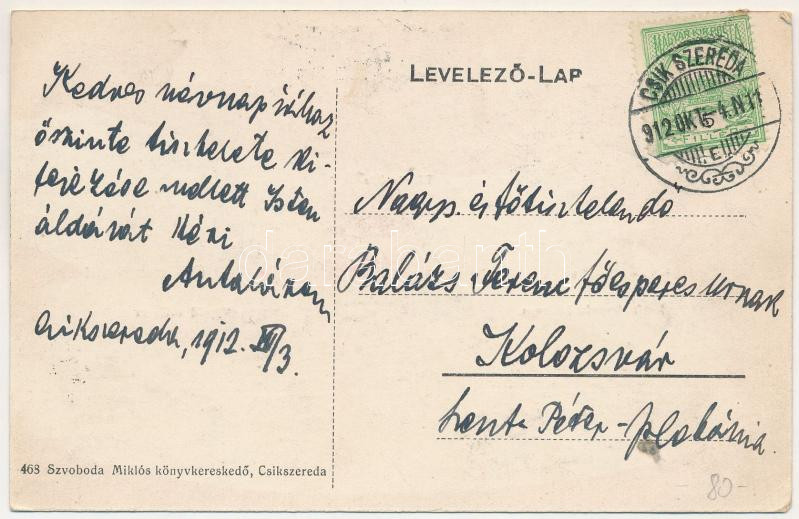 LEVELEZŐ-LAP
MAGYAR KIR. POSTA
CSIK SZEREDA
912 OKT. 4. N 11
5
FILLÉR
Kedves névnapjához
őszinte tisztelete ki-
fejezése mellett Isten
áldását kéri
Csikszereda, 1912. X/3.
Nagys. és főtisztelendő
Balázs Ferenc főesperes urnak
Kolozsvár
Szent Péter-plebánia.
468 Szvoboda Miklós könyvkereskedő, Csikszereda
80-
darabanth